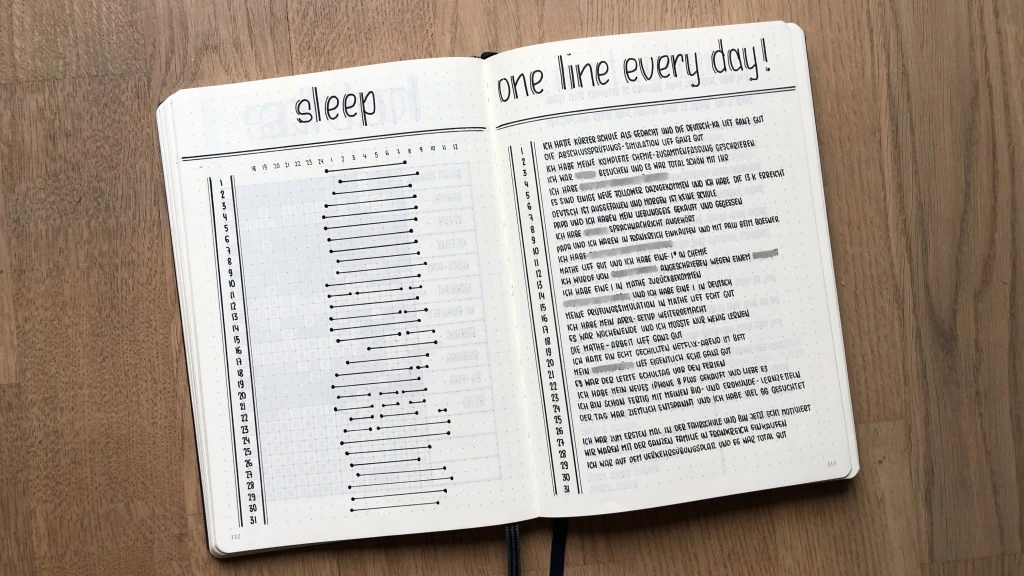 sleep
18 19 20 21 22 23 24 1 2 3 4 5 6 7 8 9 10 11 12
1
2
3
4
5
6
7
8
9
10
11
12
13
14
15
16
17
18
19
20
21
22
23
24
25
26
27
28
29
30
31
112
one line every day!
1 ICH HATTE KÜRZER SCHULE ALS GEDACHT UND DIE DEUTSCH-KA LIEF GANZ GUT
2 DIE ABSCHLUSSPRÜFUNGS-SIMULATION LIEF GANZ GUT
3 ICH HABE MEINE KOMPLETTE CHEMIE-ZUSAMMENFASSUNG GESCHRIEBEN
4 ICH WAR BESUCHEN UND ES WAR TOTAL SCHÖN MIT IHR
5 ICH HABE
6 ES SIND EINIGE NEUE FOLLOWER DAZUGEKOMMEN UND ICH HABE DIE 15 K ERREICHT
7 DEUTSCH IST AUSGEFALLEN UND MORGEN IST KEINE SCHULE
8 PAPA UND ICH HABEN MEIN GEKAUFT UND GEGESSEN
9 ICH HABE SPRACHNACHRICHT ANGEHÖRT
10 PAPA UND ICH WAREN IN FRANKREICH EINKAUFEN UND MIT PAW BEIM
11 ICH HABE
12 MATHE LIEF GUT UND ICH HABE EINE 1* IN CHEMIE
13 ICH WURDE VON ANGESCHRIEBEN WEGEN EINEM
14 ICH HABE EINE 1 IN MATHE ZURÜCKBEKOMMEN
15 UND ICH HABE EINE 1 IN DEUTSCH
16 MEINE PRÜFUNGSSIMULATION IN MATHE LIEF ECHT GUT
17 ICH HABE MEIN APRIL-SETUP WEITERGEMACHT
18 ES WAR WOCHENENDE UND ICH MUSSTE NUR WENIG LERNEN
19 DIE MATHE-ARBEIT LIEF GANZ GUT
20 ICH HATTE EIN ECHT CHILLIGEN NETFLIX-ABEND IM BETT
21 MEIN LIEF EIGENTLICH ECHT GANZ GUT
22 ES WAR DER LETZTE SCHULTAG VOR DEN FERIEN
23 ICH HABE MEIN NEUES IPHONE 8 PLUS GEKAUFT UND LIEBE ES
24 ICH BIN SCHON FERTIG MIT MEINEN BIO- UND ERDKUNDE-LERNZETTELN
25 DER TAG WAR ZIEMLICH ENTSPANNT UND ICH HABE VIEL GESUCHTET
26
27 ICH WAR ZUM ERSTEN MAL IN DER FAHRSCHULE UND BIN JETZT ECHT MOTIVIERT
28 WIR WAREN MIT DER GANZEN FAMILIE IN FRANKREICH EINKAUFEN
29 ICH WAR AUF DEM VERKEHRSÜBUNGSPLATZ UND ES WAR TOTAL GUT
30
31
113